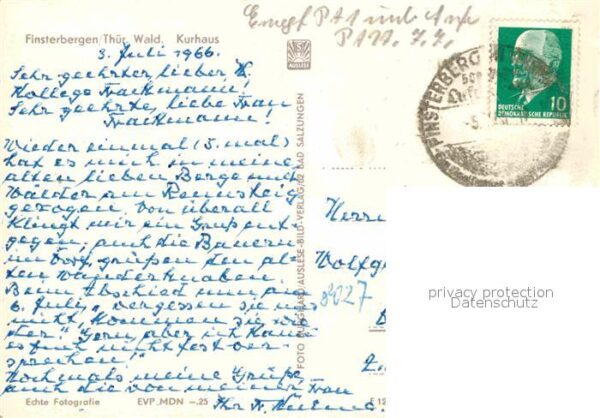 Finsterbergen/Thür. Wald. Kurhaus
3. Juli 1966.
Sehr geehrter lieber H.
Kollege Trautmann,
Sehr geehrte, liebe Frau
Trautmann!
Wieder einmal (5. mal)
hat es mich in meine
alten lieben Berge und
Wälder am Rennsteig
gezogen. Von überall
klingt mir ein Gruß ent-
gegen, auch die Bauern
im Dorf grüßen den al-
ten Wanderknaben.
Beim Abschied nun am
6. Juli, "vergessen sie uns
nicht, kommen sie wie
der." "Gern, aber ich kann
es Euch nicht fest ver-
sprechen."
Nochmals meine Grüße,
auch die von meiner Frau
Ihr Fr.
Echte Fotografie EVP MDN -.25
AUSLESE
AUSLESE-BILD-VERLAG/82 BAD SALZUNGEN
Empf
FINSTERBERGEN
DEUTSCHE
DEMOKRATISCHE REPUBLIK
10
Herrn
Wolfg
8027
privacy protection
Datenschutz